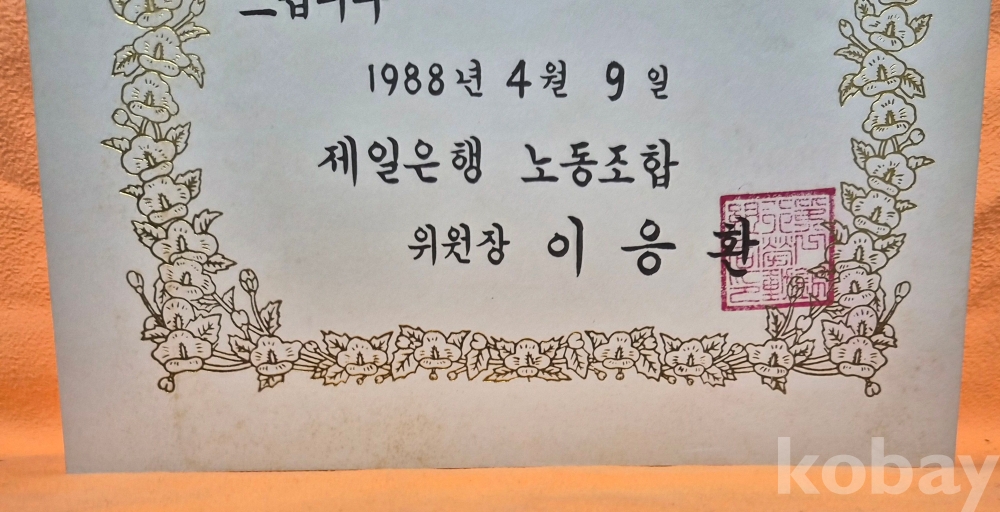 드립니다
1988년 4월 9일
제일은행 노동조합
위원장 이응환
kobay